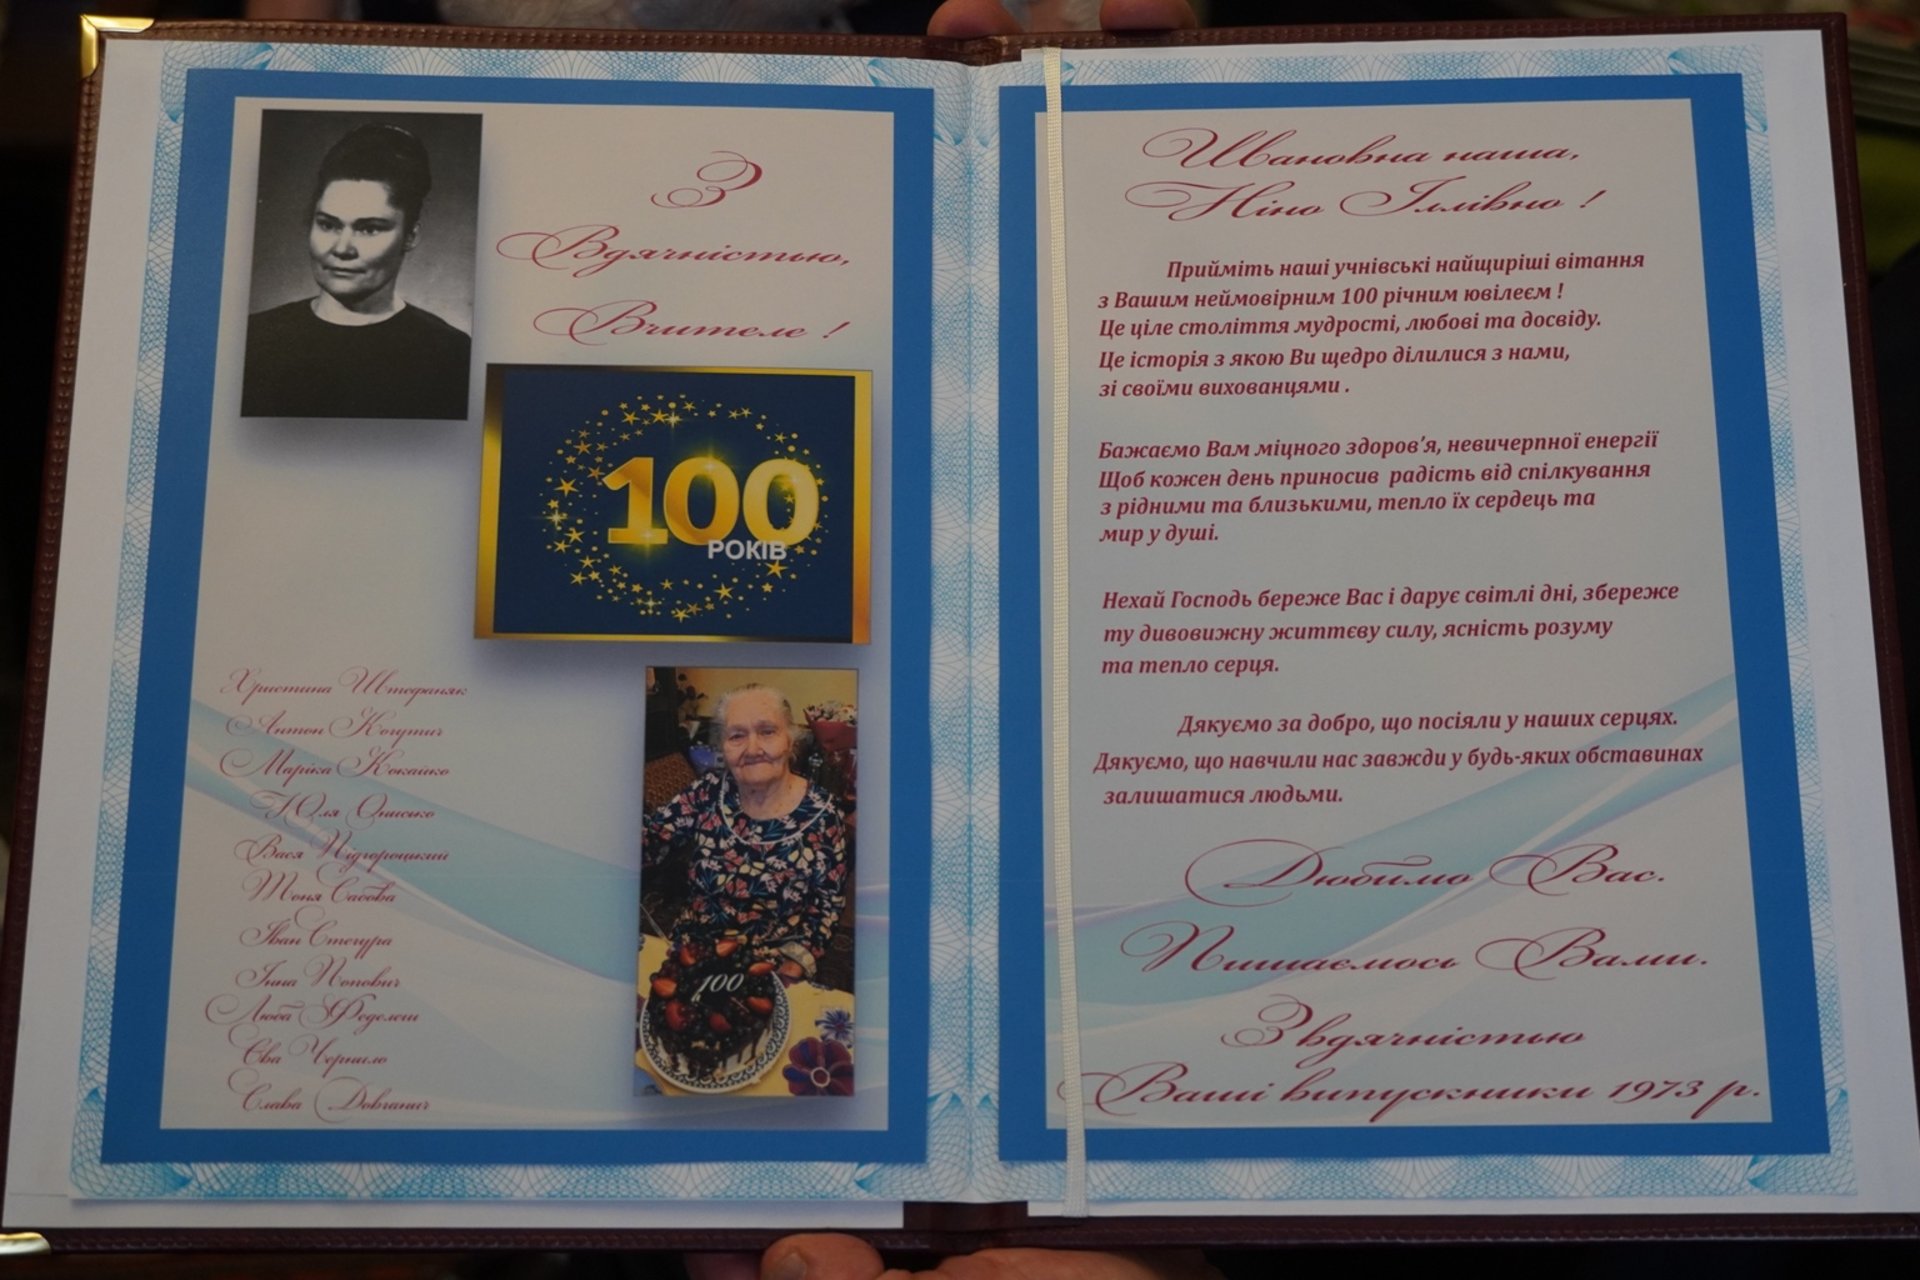 З
Вдячністью,
Вчителе !
100
РОКІВ
Христина Штефаняк
Антон Когутич
Маріка Кокайко
Юля Онисько
Вася Підгороцький
Тоня Сабова
Іван Стегура
Інна Попович
Люба Феделеш
Єва Чорнило
Слава Довганич
100
Шановна наша,
Ніно Іллівно !
Прийміть наші учнівські найщиріші вітання
з Вашим неймовірним 100 річним ювілеєм !
Це ціле століття мудрості, любові та досвіду.
Це історія з якою Ви щедро ділилися з нами,
зі своїми вихованцями .
Бажаємо Вам міцного здоров’я, невичерпної енергії
Щоб кожен день приносив радість від спілкування
з рідними та близькими, тепло їх сердець та
мир у душі.
Нехай Господь береже Вас і дарує світлі дні, збереже
ту дивовижну життєву силу, ясність розуму
та тепло серця.
Дякуємо за добро, що посіяли у наших серцях.
Дякуємо, що навчили нас завжди у будь-яких обставинах
залишатися людьми.
Любимо Вас.
Пишаємось Вами.
З вдячністью
Ваші випускники 1973 р.